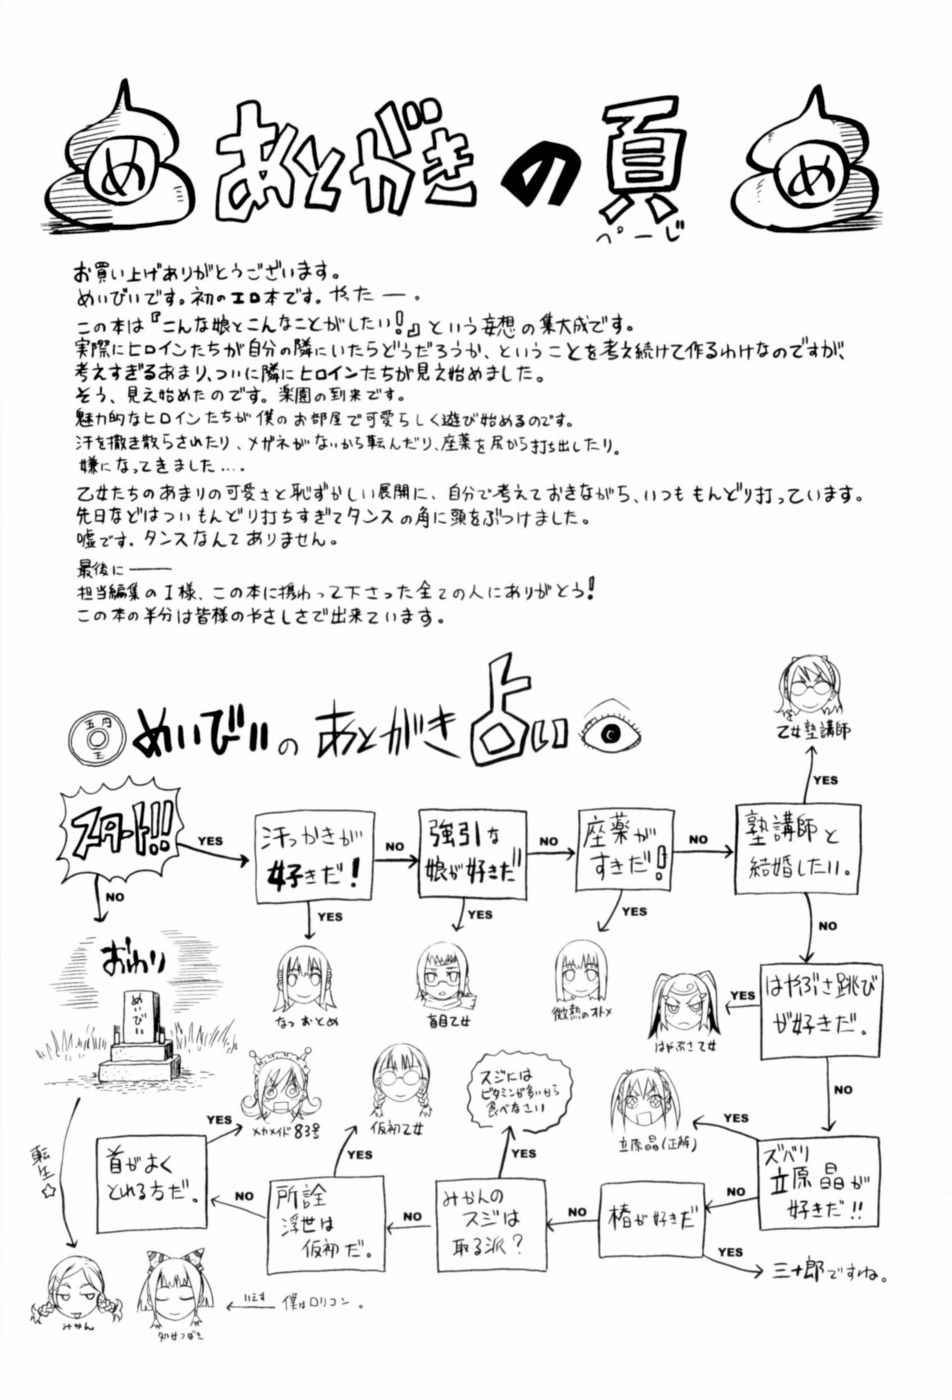 め
あとがきの頁
ぺーじ
め
お買い上げありがとうございます。
めいびいです。初のエロ本です。やったー。
この本は『こんな娘とこんなことがしたい!』という妄想の集大成です。
実際にヒロインたちが自分の隣にいたらどうだろうか、ということを考え続けて作るわけなのですが、
考えすぎるあまり、ついに隣にヒロインたちが見え始めました。
そう、見え始めたのです。楽園の到来です。
魅力的なヒロインたちが僕のお部屋で可愛らしく遊び始めるのです。
汗を撒き散らされたり、メガネがないから転んだり、座薬を尻から打ち出したり。
嫌になってきました....
乙女たちのあまりの可愛さと恥ずかしい展開に、自分で考えておきながら、いつももんどり打っています。
先日などはついもんどり打ちすぎてタンスの角に頭をぶつけました。
嘘です。タンスなんてありません。
最後に――
担当編集のI様、この本に携わって下さった全ての人にありがとう!
この本の半分は皆様のやさしさで出来ています。
五円
玉
めいびいのあとがき占い
乙女塾講師
YES
スタート!!
YES
汗っかきが
好きだ!
NO
強引な
娘が好きだ
NO
座薬が
すきだ!
NO
塾講師と
結婚したい。
NO
YES
YES
YES
NO
おわり
めいびい
なつおとめ
盲目乙女
微熱のオトメ
はやぶさ乙女
YES
はやぶさ跳び
が好きだ。
NO
メカメイド83号
仮初乙女
スジには
ビタミンが多いから
食べなさい
立原晶(正解)
YES
ズバリ
立原晶が
好きだ!!
転生☆
首がよく
とれる方だ。
YES
NO
所詮
浮世は
仮初だ。
YES
NO
みかんの
スジは
取る派?
YES
NO
椿が好きだ
NO
YES
三十郎ですね。
みかん
処女つばき
いえす
僕はロリコン。